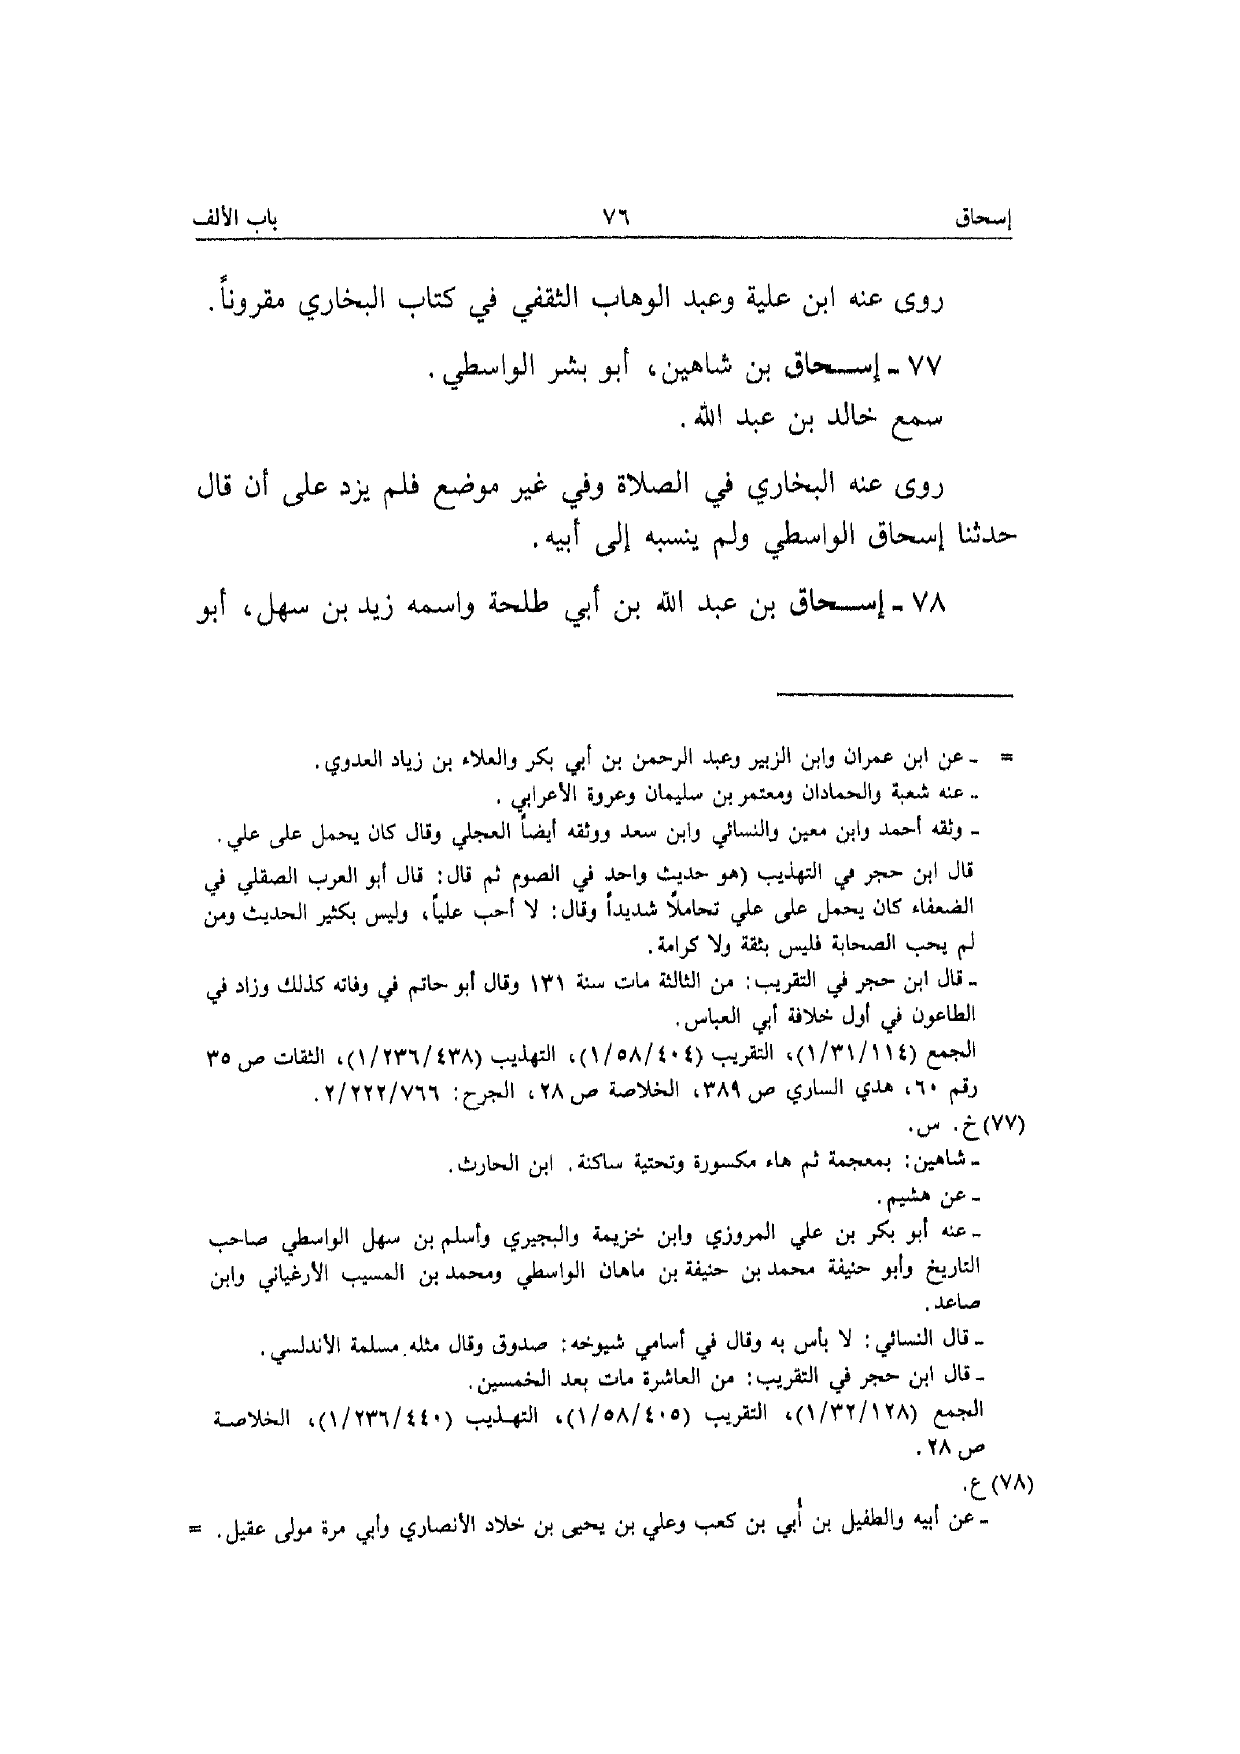 إسحاق ٧٦ باب الألف
روى عنه ابن علية وعبد الوهاب الثقفي في كتاب البخاري مقروناً.
٧٧ ـ إســحاق بن شاهين، أبو بشر الواسطي.
سمع خالد بن عبد الله.
روى عنه البخاري في الصلاة وفي غير موضع فلم يزد على أن قال
حدثنا إسحاق الواسطي ولم ينسبه إلى أبيه.
٧٨ ـ إســحاق بن عبد الله بن أبي طلحة واسمه زيد بن سهل، أبو
= ـ عن ابن عمران وابن الزبير وعبد الرحمن بن أبي بكر والعلاء بن زياد العدوي.
ـ عنه شعبة والحمادان ومعتمر بن سليمان وعروة الأعرابي.
ـ وثقه أحمد وابن معين والنسائي وابن سعد ووثقه أيضاً العجلي وقال كان يحمل على علي.
قال ابن حجر في التهذيب (هو حديث واحد في الصوم ثم قال: قال أبو العرب الصقلي في
الضعفاء كان يحمل على علي تحاملاً شديداً وقال: لا أحب علياً، وليس بكثير الحديث ومن
لم يحب الصحابة فليس بثقة ولا كرامة.
ـ قال ابن حجر في التقريب: من الثالثة مات سنة ١٣١ وقال أبو حاتم في وفاته كذلك وزاد في
الطاعون في أول خلافة أبي العباس.
الجمع (١/٣١/١١٤)، التقريب (١/٥٨/٤٠٤)، التهذيب (١/٢٣٦/٤٣٨)، الثقات ص ٣٥
رقم ٦٠، هدي الساري ص ٣٨٩، الخلاصة ص ٢٨، الجرح: ٢/٢٢٢/٧٦٦.
(٧٧) خ. س.
ـ شاهين: بمعجمة ثم هاء مكسورة وتحتية ساكنة. ابن الحارث.
ـ عن هشيم.
ـ عنه أبو بكر بن علي المروزي وابن خزيمة والبجيري وأسلم بن سهل الواسطي صاحب
التاريخ وأبو حنيفة محمد بن حنيفة بن ماهان الواسطي ومحمد بن المسيب الأرغياني وابن
صاعد.
ـ قال النسائي: لا بأس به وقال في أسامي شيوخه: صدوق وقال مثله مسلمة الأندلسي.
ـ قال ابن حجر في التقريب: من العاشرة مات بعد الخمسين.
الجمع (١/٣٢/١٢٨)، التقريب (١/٥٨/٤٠٥)، التهذيب (١/٢٣٦/٤٤٠)، الخلاصة
ص ٢٨.
(٧٨) ع.
ـ عن أبيه والطفيل بن أبي بن كعب وعلي بن يحيى بن خلاد الأنصاري وأبي مرة مولى عقيل. =